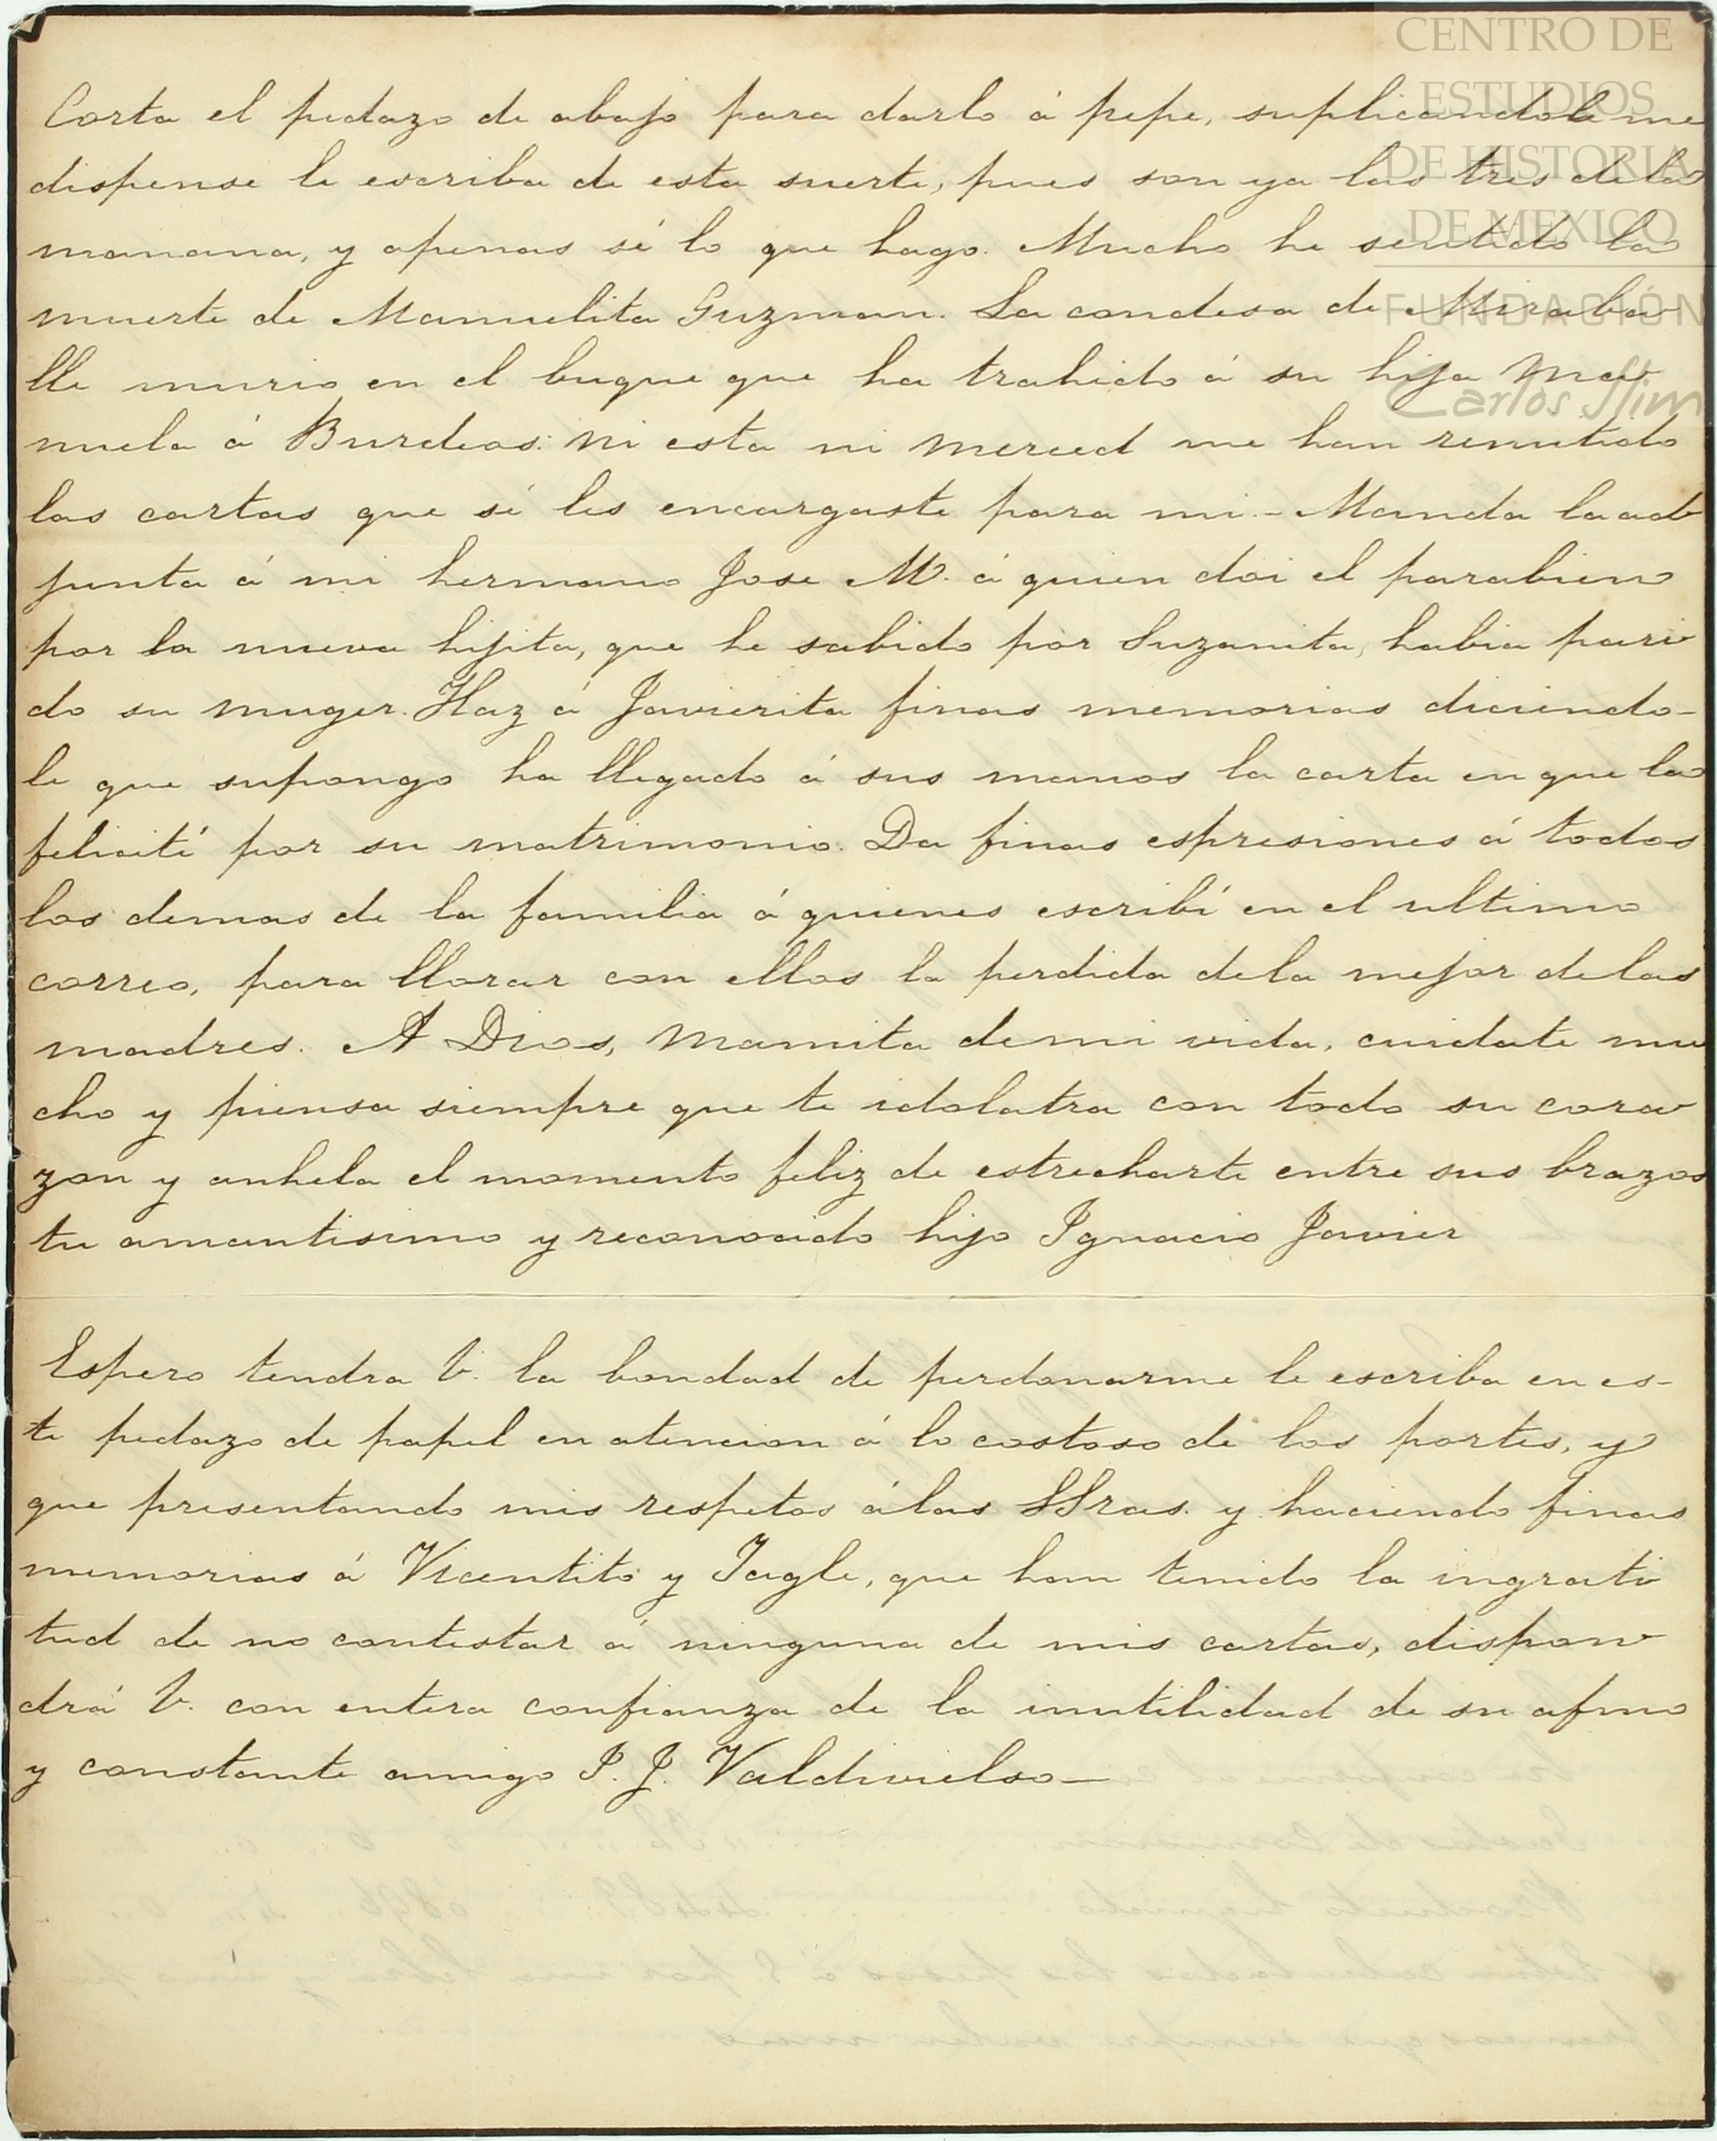 CENTRO DE
ESTUDIOS
DE HISTORIA
DE MEXICO
FUNDACIÓN
Carlos Slim
Corta el pedazo de abajo para darlo á pepe, suplicandole me
dispense le escriba de esta suerte, pues son ya las tres de la
manana, y apenas sé lo que hago. Mucho he sentido la
muerte de Manuelita Guzman. La condesa de Miraba
lle murio en el buque que ha trahido á su hija Ma
nuela á Burdeos: ni esta ni Merced me han remitido
las cartas que sé les encargaste para mi.- Manda la ad
junta á mi hermano Jose M. á quien doi el parabien
por la nueva hijita, que he sabido por Suzanita, habia pari
do su muger. Haz á Javierita finas memorias diciendo-
le que supongo ha llegado á sus manos la carta en que la
felicité por su matrimonio. Da finas espresiones á todos
los demas de la familia á quienes escribí en el ultimo
correo, para llorar con ellos la perdida de la mejor de las
madres. A Dios, Mamita de mi vida, cuidate mu
cho y piensa siempre que te idolatra con todo su cora
zon y anhela el momento feliz de estrecharte entre sus brazos
tu amantisimo y reconocido hijo Ignacio Javier
Espero tendra V. la bondad de perdonarme le escriba en es-
te pedazo de papel en atencion á lo costoso de los portes, y
que presentando mis respetos á las SSras. y haciendo finas
memorias á Vicentito y Tagle, que han tenido la ingrati
tud de no contestar á ninguna de mis cartas, dispon
drá V. con entera confianza de la inutilidad de su afmo
y constante amigo I. J. Valdivielso—